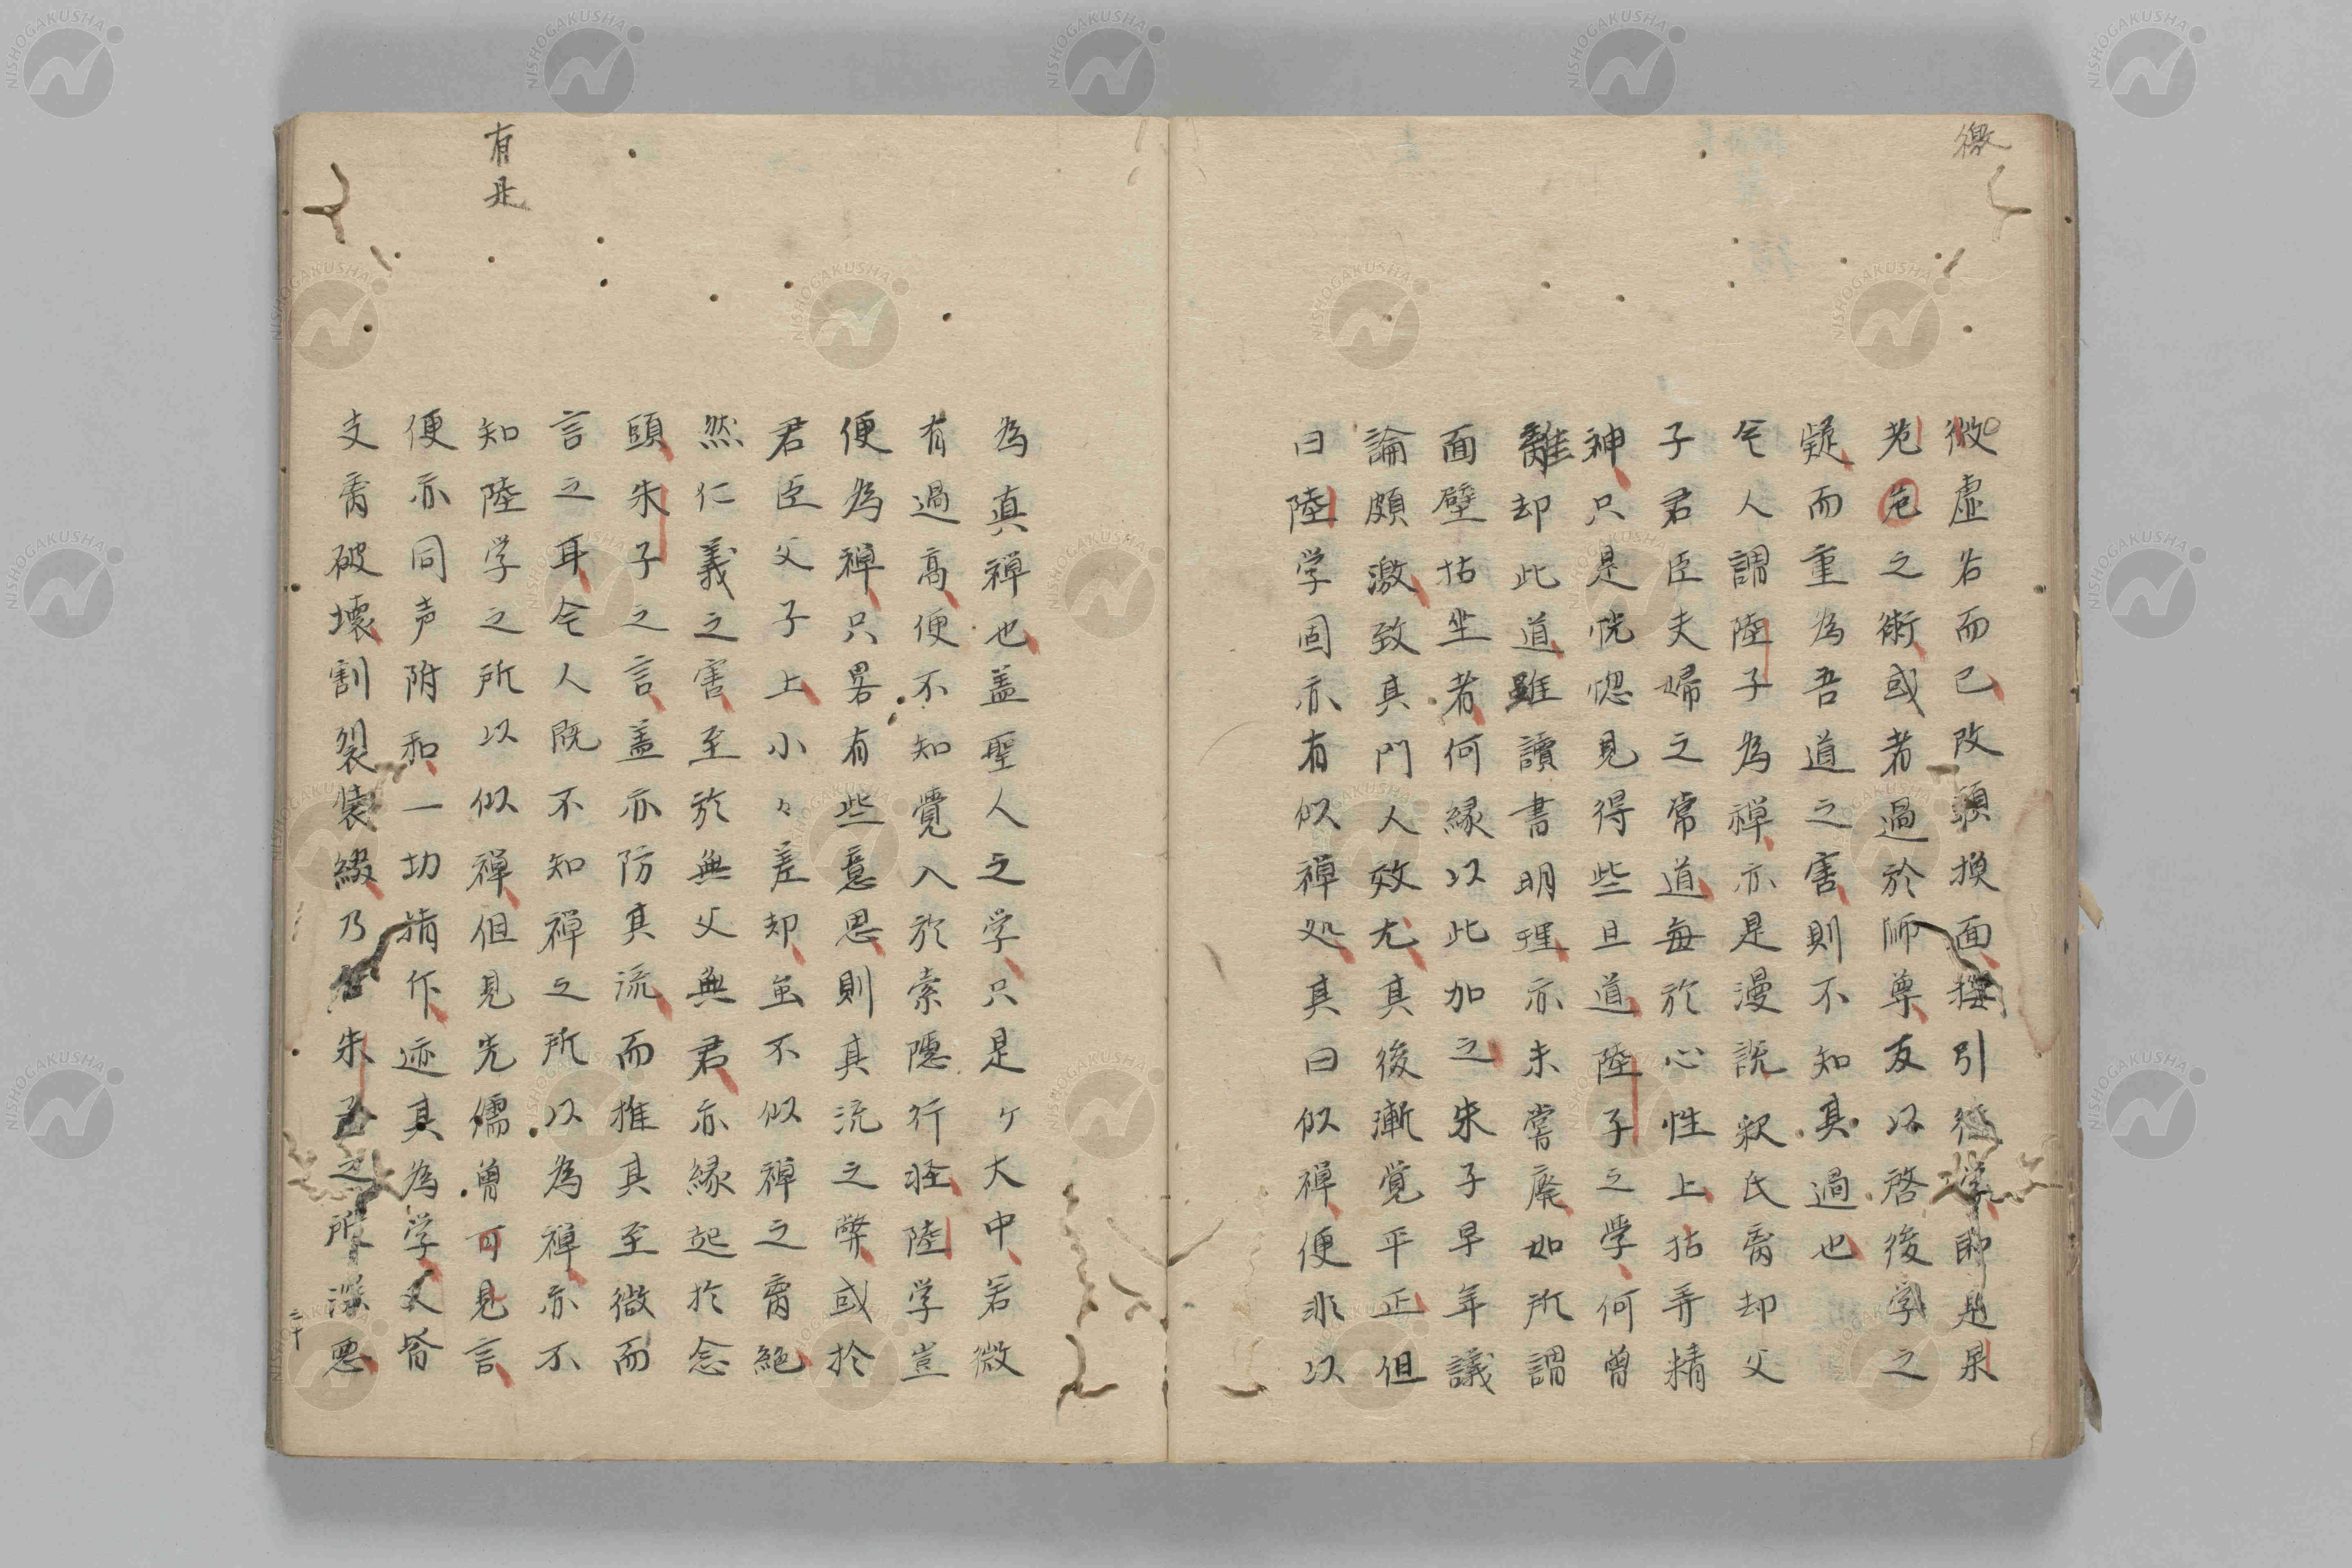 徼
微虚名而已改頭換面撰引後学即是杲
老范之術或者過於師尊友以啓後学之
疑而重為吾道之害則不知其過也
今人謂陸子為禅亦是漫説釈氏脔却父
子君臣夫婦之常道每於心性上拈弄精
神只是恍惚見得些且道陸子之学何曾
離却此道雖讀書明理亦未嘗廃如所謂
面壁拈坐者何縁以此加之朱子早年議
論頗激致其門人效尤其後漸覚平正但
曰陸学固亦有似禅処其曰似禅便非以
為真禅也盖聖人之学只是ケ大中若微
有過高便不知覺入於索隠行怪陸学豈
便為禅只畧有些意思則其流之弊或於
君臣父子上小々差却虽不似禅之脔絶
然仁義之害至於無父無君亦縁起於念
頭朱子之言盖亦防其流而推其至微而
言之耳今人既不知禅之所以為禅亦不
知陸学之所以似禅但見先儒曽可見言
便亦同声附和一切指作迹其為学又皆
支脔破壊割裂装綴乃 朱子之所深悪
有是
二十